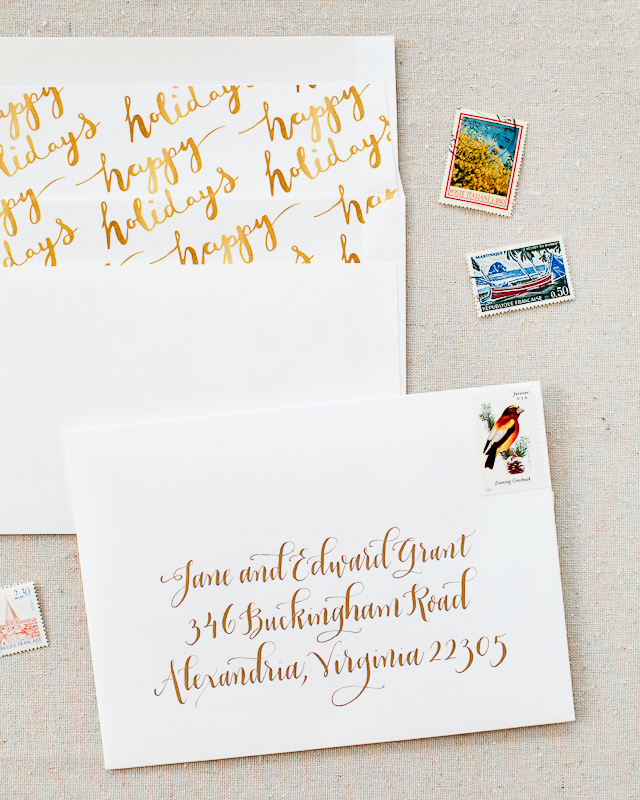 happy
holidays
happy
holidays
happy
holidays
happy
holidays
happy
holidays
happy
POSTE ITALIANE
MARTINIQUE
0.50
REPUBLIQUE FRANÇAISE
forever
USA
Evening Grosbeak
Jane and Edward Grant
346 Buckingham Road
Alexandria, Virginia 22305
2.30